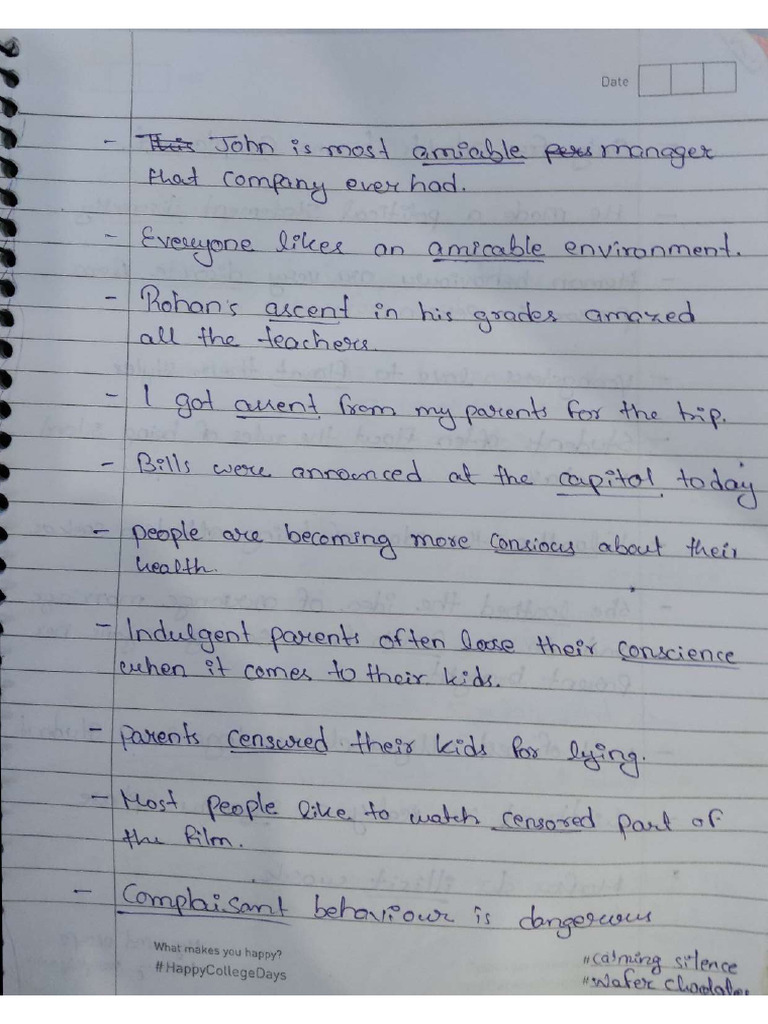 Date
- This John is most amiable pers manager
that company ever had.
- Everyone likes an amicable environment.
- Rohan's ascent in his grades amazed
all the teachers.
- I got assent from my parents for the trip.
- Bills were announced at the capitol today
- people are becoming more consious about their
health.
- Indulgent parents often loose their conscience
when it comes to their kids.
- parents censured their kids for lying.
- Most people like to watch censored part of
the film.
- Complaisant behaviour is dangerous
What makes you happy?
#HappyCollegeDays
#calming silence
#wafer